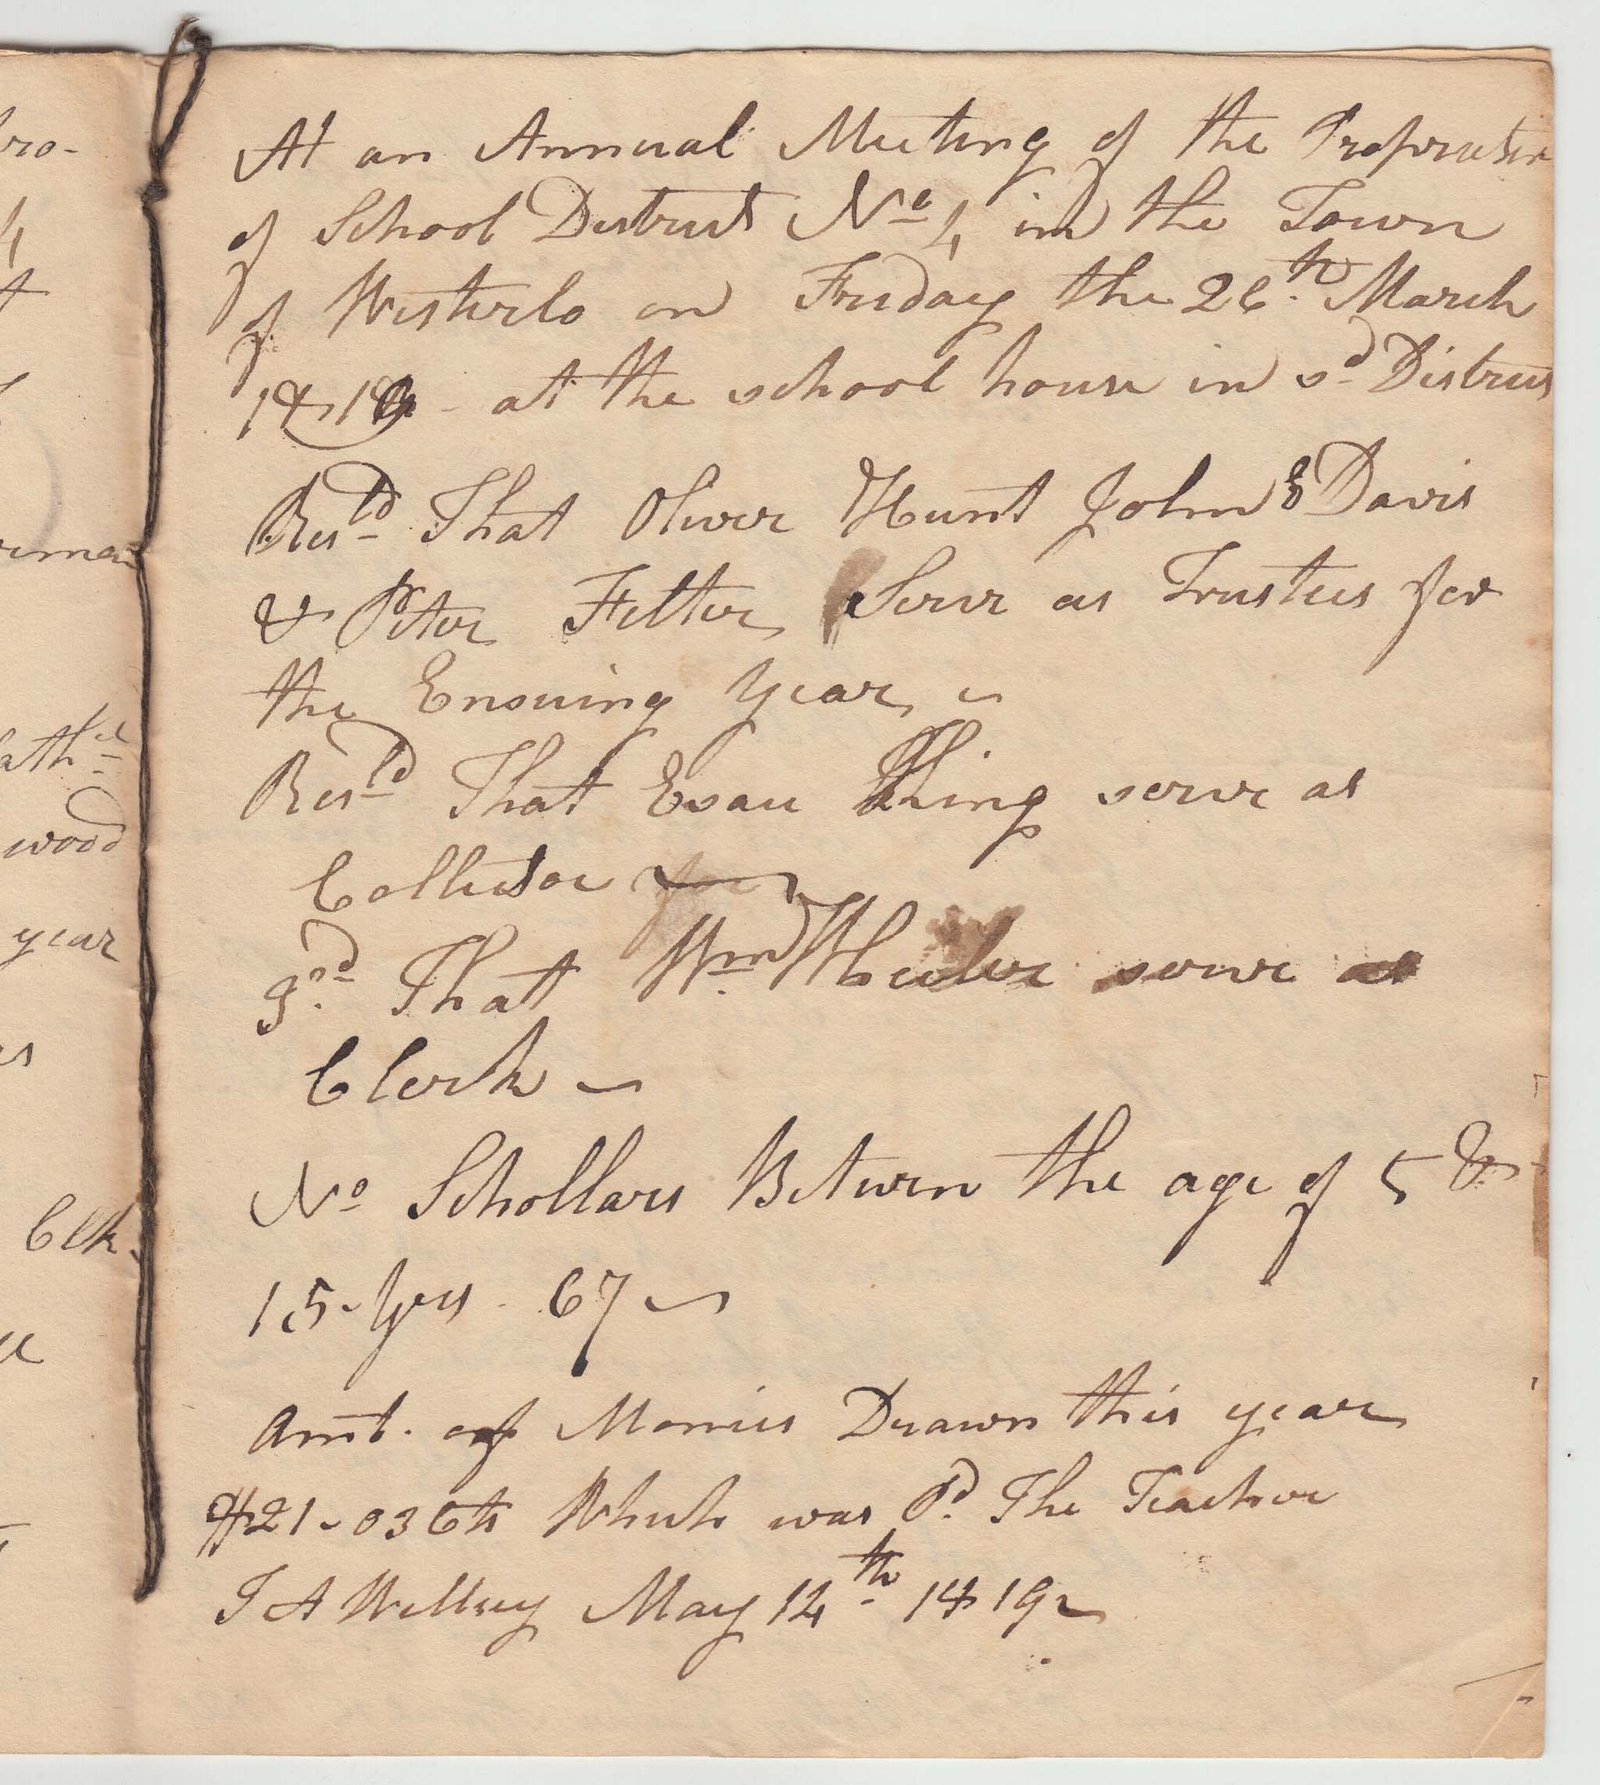 At an Annual Meeting of the Proprietor
of School District No 4 in the Town
of Westerlo on Friday the 26th March
1819 - at the school house in sd District
Resld That Oliver Hunt John Davis
& Peter Felter Serve as Trustees for
the Ensuing Year
Resld That Esau King serve as
Collector for
3rd That Wm Wheeler serve as
Clerk
No Schollars Between the age of 5 &
15 Yers - 67
Amt. of Monies Drawn this year
$21-03Cts Which was Pd. The Teacher
May 14th 1819
ro-
4
t
rma
ath
wood
year
Clk.